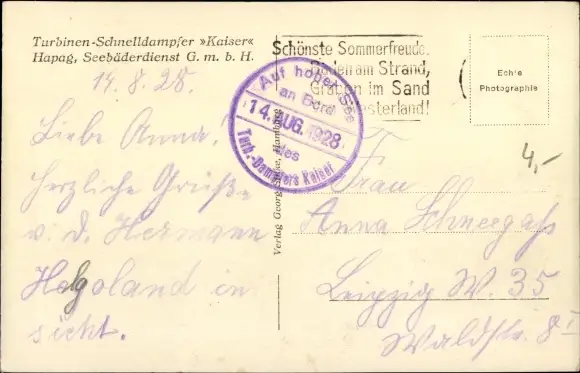 Turbinen-Schnelldampfer »Kaiser«
Hapag, Seebäderdienst G. m. b. H.
14.8.28.
Liebe Anna!
Herzliche Grüße
v. d. Hermann
Helgoland in
sicht.
Schönste Sommerfreude.
Baden am Strand,
Graben im Sand
Westerland!
Auf hoher See
an Bord
14. AUG. 1928
des
Turb.-Dampfers Kaiser
Verlag Georg Hamburg
Echte
Photographie
4,-
Frau
Anna Schneegaß
Leipzig W. 35
Waldstr. 8